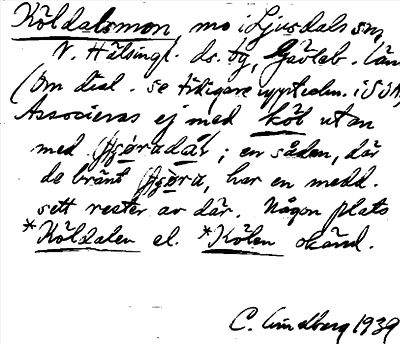 Köldalsmon, mo i Ljusdals sn,
N. Hälsingl. ds. bg, Gävleb. län
(Om dial. se tidigare uppteckn. i SOA)
Associeras ej med köl utan
med tjäradal; en sådan, där
de bränt tjära, har en medd.
sett rester av där. Någon plats
*Köldalen el. *Kölen okänd.
C. Lindberg 1939